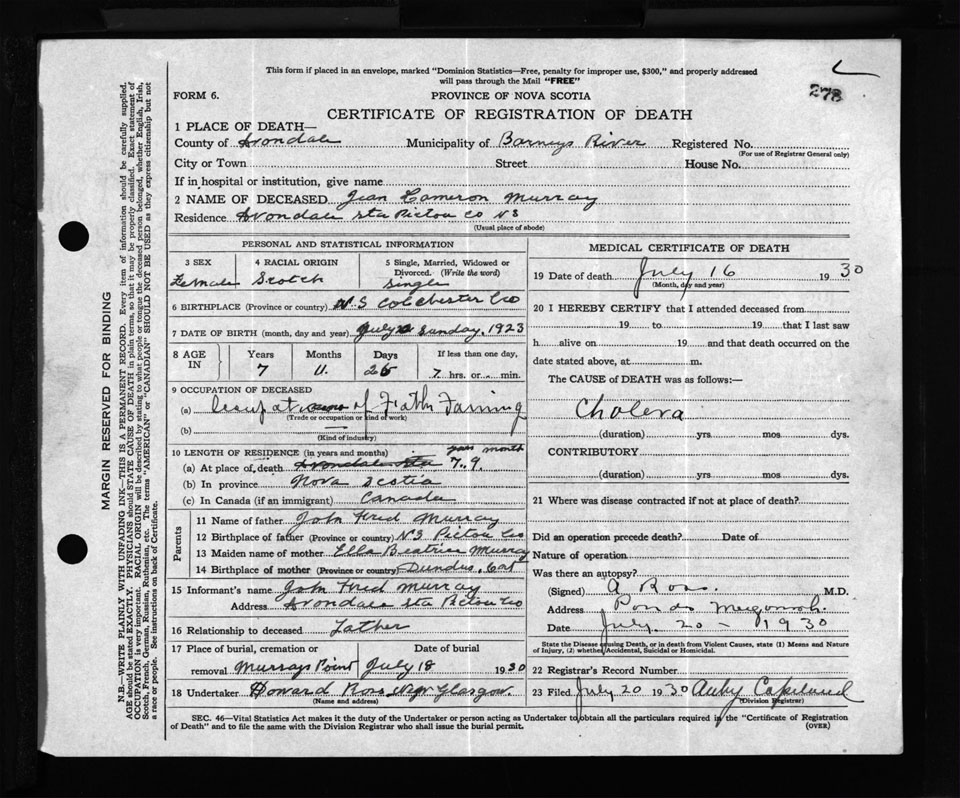 This form if placed in an envelope, marked "Dominion Statistics—Free, penalty for improper use, $300," and properly addressed
will pass through the Mail "FREE"
278
FORM 6.
PROVINCE OF NOVA SCOTIA
CERTIFICATE OF REGISTRATION OF DEATH
1 PLACE OF DEATH—
County of Avondale Municipality of Barneys River Registered No.
(For use of Registrar General only)
City or Town Street House No.
If in hospital or institution, give name
2 NAME OF DECEASED Jean Cameron Murray
Residence Avondale Sta Pictou Co NS
(Usual place of abode)
PERSONAL AND STATISTICAL INFORMATION
3 SEX 4 RACIAL ORIGIN 5 Single, Married, Widowed or
Divorced. (Write the word)
Female Scotch Single
6 BIRTHPLACE (Province or country) N.S Colchester Co
7 DATE OF BIRTH (month, day and year) July Sunday, 1923
8 AGE IN Years Months Days If less than one day,
7 11 7 hrs. or min.
9 OCCUPATION OF DECEASED
(a) of Father Farming
(Trade or occupation or kind of work)
(b)
(Kind of industry)
10 LENGTH OF RESIDENCE (in years and months) years month
(a) At place of death Avondale Sta 7.9.
(b) In province Nova Scotia
(c) In Canada (if an immigrant) Canada
Parents
11 Name of father John Fred Murray
12 Birthplace of father (Province or country) NS Pictou Co
13 Maiden name of mother Ella Beatrice Murray
14 Birthplace of mother (Province or country) Dundas,
15 Informant's name John Fred Murray
Address Avondale Sta Pictou Co
16 Relationship to deceased Father
17 Place of burial, cremation or Date of burial
removal Murrays Point July 18 1930
18 Undertaker Howard Ross New Glasgow
(Name and address)
MEDICAL CERTIFICATE OF DEATH
19 Date of death July 16 1930
(Month, day and year)
20 I HEREBY CERTIFY that I attended deceased from
19 to 19 that I last saw
h alive on 19 and that death occurred on the
date stated above, at m.
The CAUSE of DEATH was as follows:—
Cholera
(duration) yrs mos dys.
CONTRIBUTORY
(duration) yrs mos dys.
21 Where was disease contracted if not at place of death?
Did an operation precede death? Date of
Nature of operation
Was there an autopsy?
(Signed) A Ross. M.D.
Address
Date July. 20 - 1930
State the Disease causing Death, or in death from Violent Causes, state (1) Means and Nature
of Injury, (2) whether Accidental, Suicidal or Homicidal.
22 Registrar's Record Number
23 Filed July 20 1930
(Division Registrar)
SEC. 46—Vital Statistics Act makes it the duty of the Undertaker or person acting as Undertaker to obtain all the particulars required in the "Certificate of Registration
of Death" and to file the same with the Division Registrar who shall issue the burial permit.
(OVER)
MARGIN RESERVED FOR BINDING
N.B.—WRITE PLAINLY WITH UNFADING INK—THIS IS A PERMANENT RECORD. Every item of information should be carefully supplied.
AGE should be stated EXACTLY. PHYSICIANS should STATE CAUSE OF DEATH in plain terms, so that it may be properly classified. Exact statement of
OCCUPATION is very important. RACIAL ORIGIN will be described by stating to what people or tongue the deceased person belonged, whether English, Irish,
Scotch, French, German, Russian, Ruthenian, etc. The terms "AMERICAN" or "CANADIAN" SHOULD NOT BE USED as they express citizenship but not
a race or people. See instructions on back of Certificate.